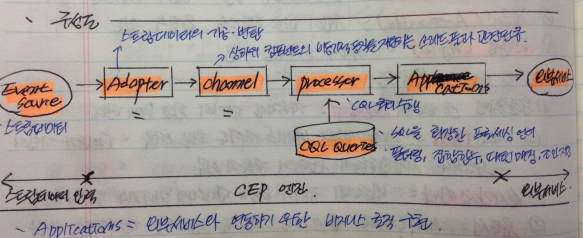 구성도
스트림데이터의 가공·변환
상하위 컴포넌트의 비동기적 동작을 제어하는 스레드 풀과 관련된 큐
Event Source
Adapter
channel
processor
Applications
외부서비스
스트림데이터
=
=
CQL 쿼리 수행
CQL Queries
SQL을 확장한 프로세싱 언어
필터링, 집합함수, 패턴매칭, 조인지원
스트림데이터 입력
CEP 엔진
외부서비스
Applications = 외부서비스와 연동하기 위한 비지니스 로직 구현